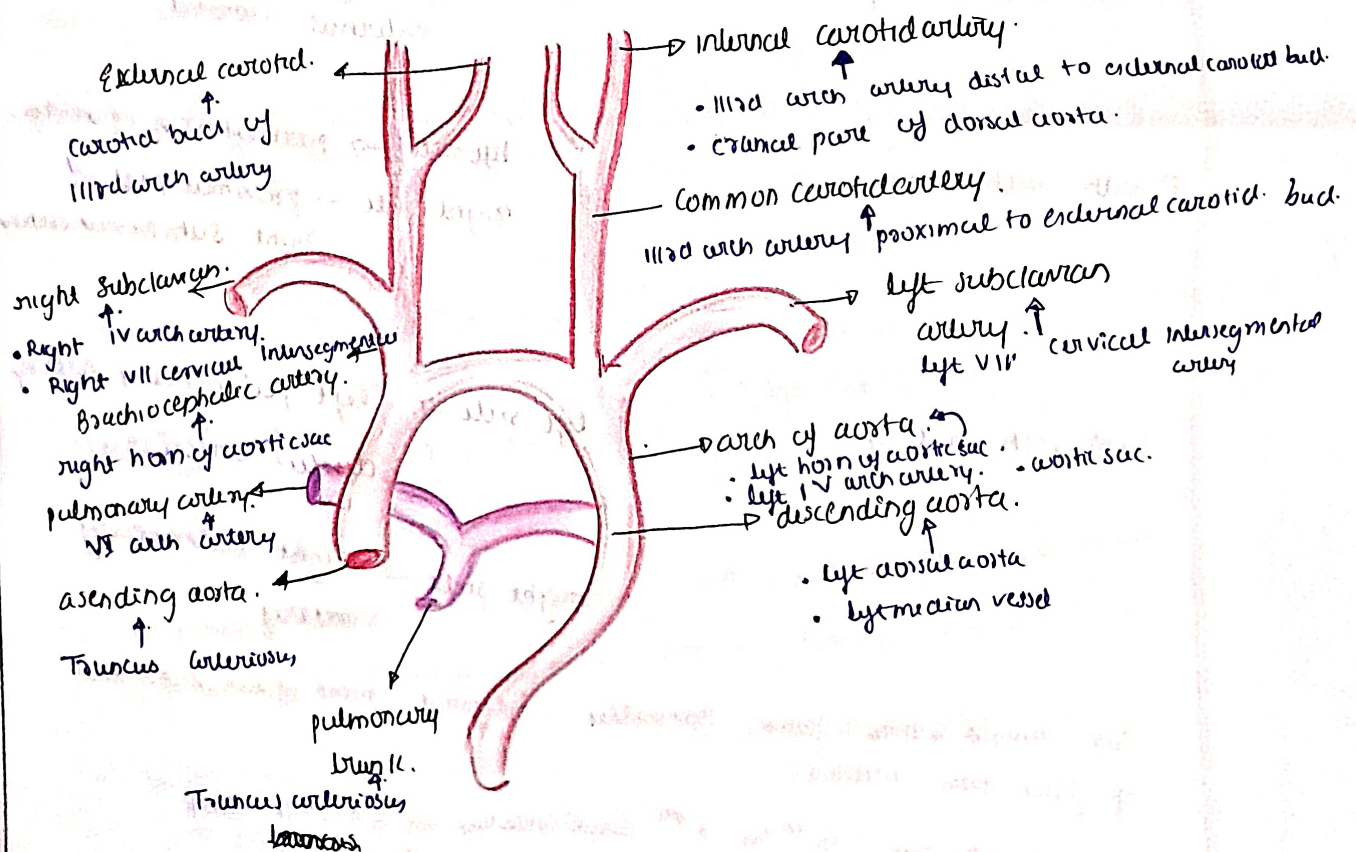 External carotid.
carotid bud of
IIIrd arch artery
right subclavian.
• Right IV arch artery.
• Right VII cervical intersegmental
Brachiocephalic artery.
right horn of aortic sac
pulmonary artery.
VI arch artery
asending aorta.
Truncus arteriosus
pulmonary
trunk.
Truncus arteriosus
internal carotid artery.
• IIIrd arch artery distal to external carotid bud.
• cranial part of dorsal aorta.
Common carotid artery.
IIIrd arch artery proximal to external carotid bud.
left subclavian
artery.
left VII cervical intersegmental
artery
arch of aorta.
• left horn of aortic sac.
• left IV arch artery. • aortic sac.
descending aorta.
• left dorsal aorta
• left median vessel